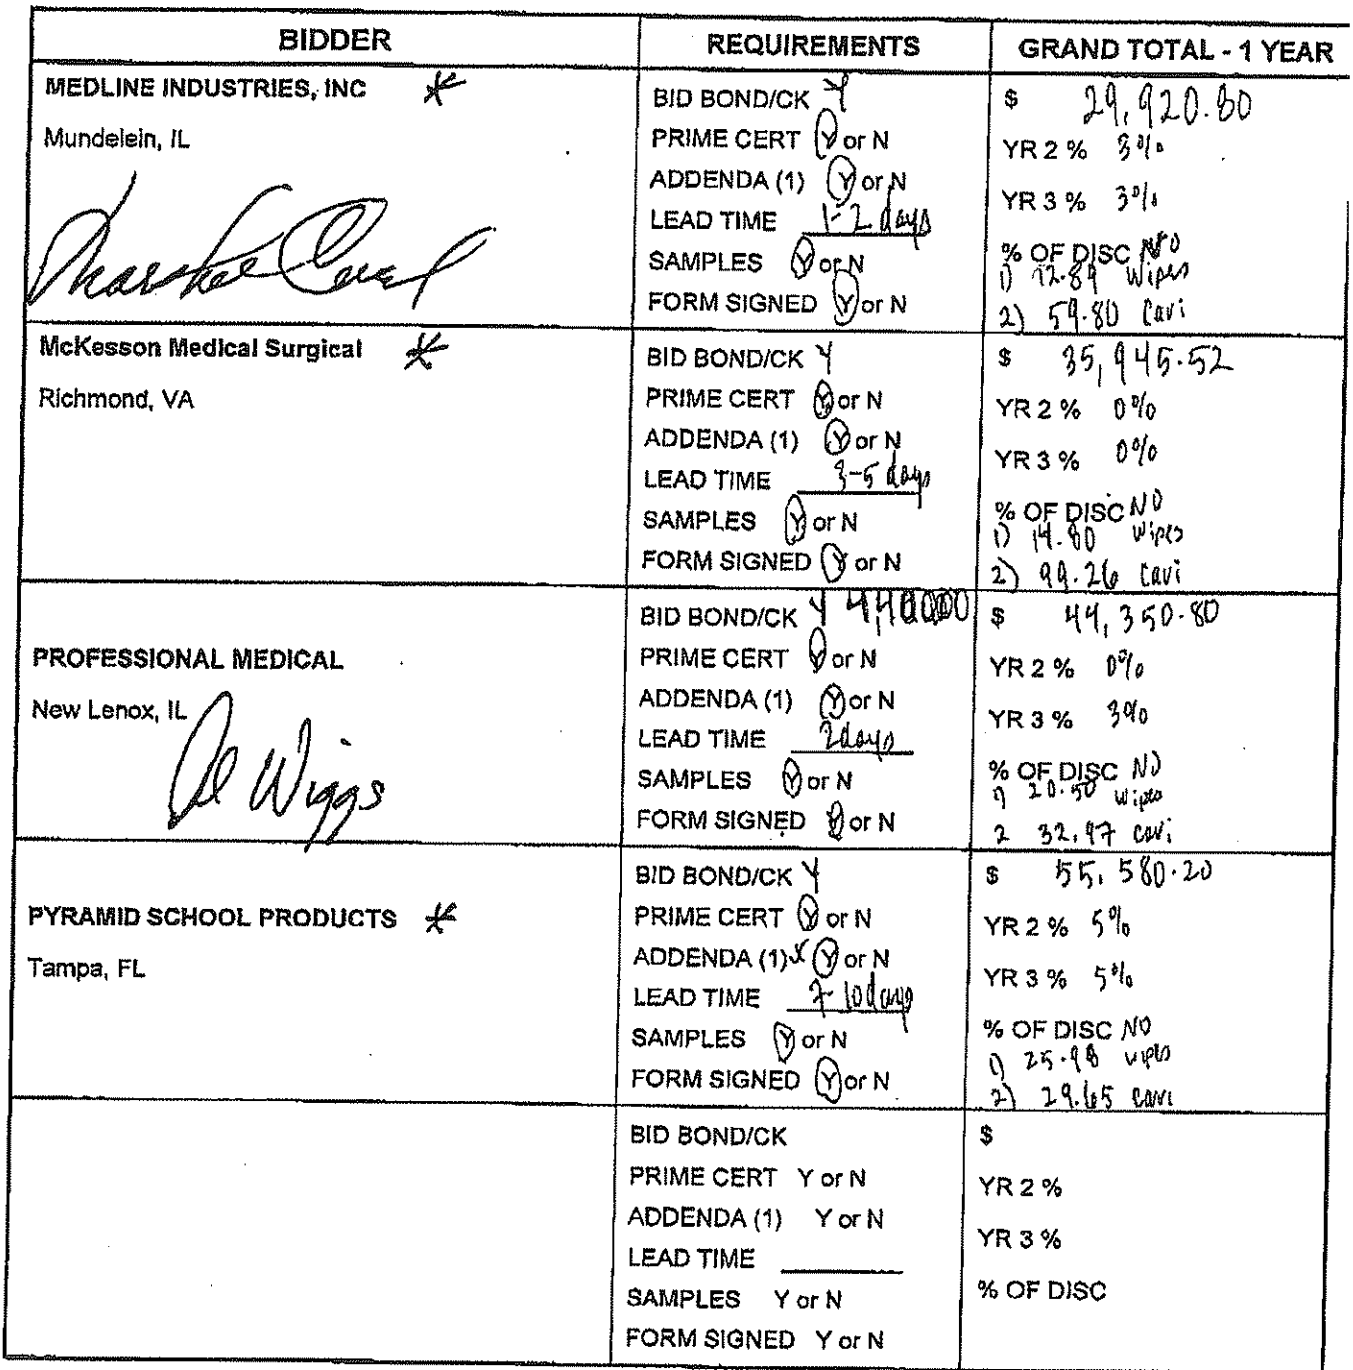 BIDDER REQUIREMENTS GRAND TOTAL - 1 YEAR
MEDLINE INDUSTRIES, INC
Mundelein, IL
BID BOND/CK Y
PRIME CERT Y or N
ADDENDA (1) Y or N
LEAD TIME 1-2 days
SAMPLES Y or N
FORM SIGNED Y or N
$ 29,920.80
YR 2 % 3%
YR 3 % 3%
% OF DISC NO
1) 12.89 Wipes
2) 59.80 Cavi
McKesson Medical Surgical
Richmond, VA
BID BOND/CK Y
PRIME CERT Y or N
ADDENDA (1) Y or N
LEAD TIME 3-5 days
SAMPLES Y or N
FORM SIGNED Y or N
$ 35,945.52
YR 2 % 0%
YR 3 % 0%
% OF DISC NO
1) 14.80 Wipes
2) 99.26 Cavi
PROFESSIONAL MEDICAL
New Lenox, IL
Wiggs
BID BOND/CK Y
PRIME CERT Y or N
ADDENDA (1) Y or N
LEAD TIME 2days
SAMPLES Y or N
FORM SIGNED Y or N
$ 44,350.80
YR 2 % 0%
YR 3 % 3%
% OF DISC NO
1) 20.50 Wipes
2 32.97 cavi
PYRAMID SCHOOL PRODUCTS
Tampa, FL
BID BOND/CK Y
PRIME CERT Y or N
ADDENDA (1) Y or N
LEAD TIME 7-10days
SAMPLES Y or N
FORM SIGNED Y or N
$ 55,580.20
YR 2 % 5%
YR 3 % 5%
% OF DISC NO
1) 25.98 wipes
2) 29.65 cavi
BID BOND/CK
PRIME CERT Y or N
ADDENDA (1) Y or N
LEAD TIME
SAMPLES Y or N
FORM SIGNED Y or N
$
YR 2 %
YR 3 %
% OF DISC